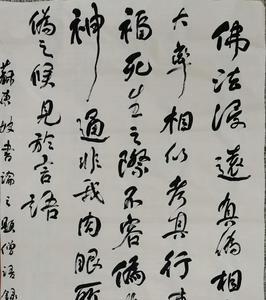 佛法浸遠真偽相
大率相似考其行事
禍死生之際不容偽
神通非我肉眼所
偽之候見於言語
蘇東坡書論之題僧語録